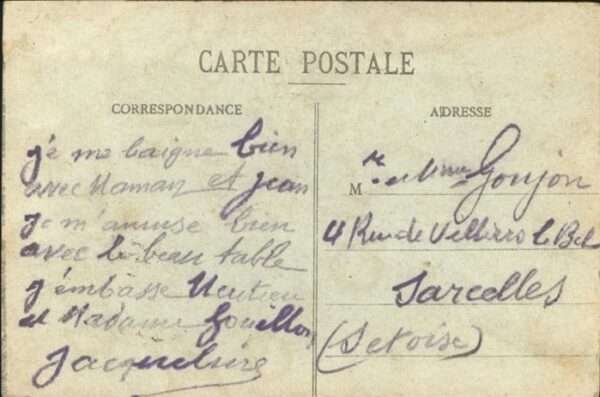 CARTE POSTALE
CORRESPONDANCE
ADRESSE
je me baigne bien
avec Maman et jean
je m'amuse bien
avec le beau table
j'embasse
et Madame
Jacqueline
M re et Mme Goujon
4 Rue de Le Bel
Sarcelles
(Set Oise)